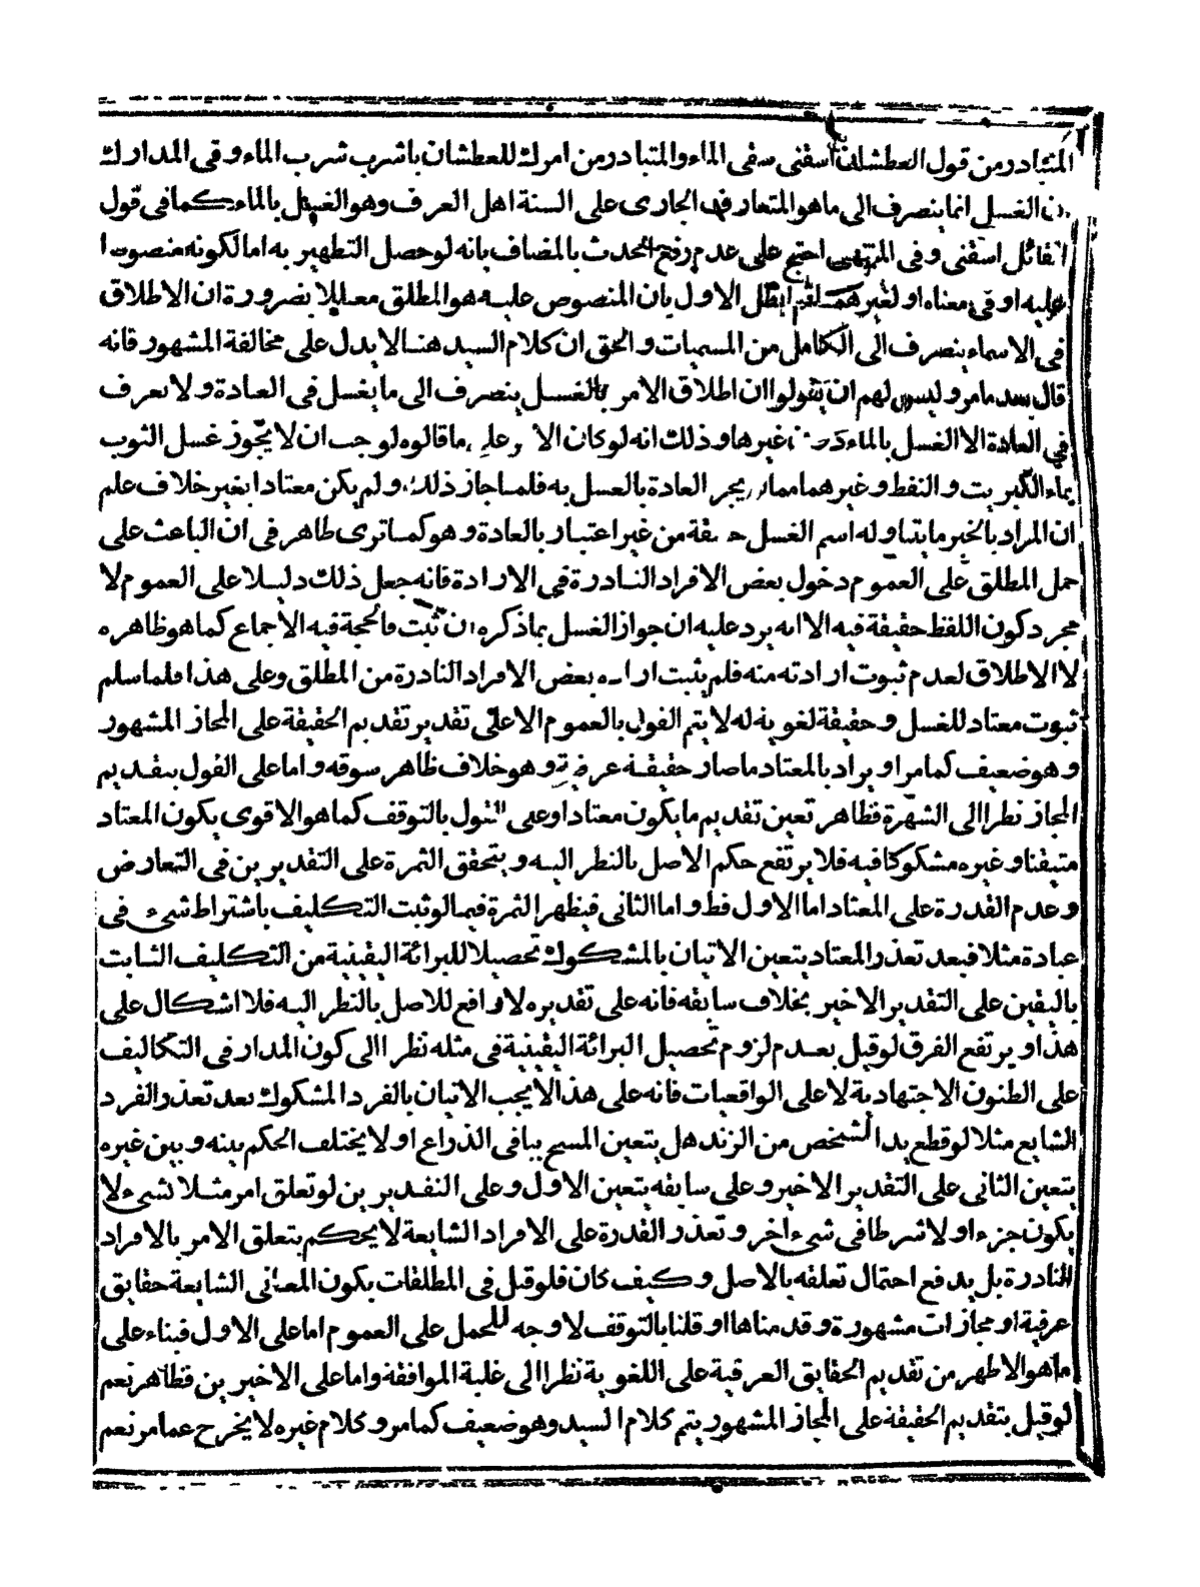 المتبادر من قول العطشان اسقنى سقى الماء والمتبادر من امرك للعطشان باشرب شرب الماء وفى المدارك
ان الغسل انما ينصرف الى ما هو المتعارف الجارى على السنة اهل العرف وهو الغسل بالماء كما فى قول
القائل اسقنى وفى المنتهى احتج على عدم رفع الحدث بالمضاف بانه لو حصل التطهير به اما لكونه منصوصا
عليه او فى معناه او لغيرهما ثم ابطل الاول بان المنصوص عليه هو المطلق معللا بضرورة ان الاطلاق
فى الاسماء ينصرف الى الكامل من المسميات والحق ان كلام السيد هنا لا يدل على مخالفة المشهور فانه
قال بعد ما مر وليس لهم ان يقولوا ان اطلاق الامر بالغسل ينصرف الى ما يغسل فى العادة ولا يعرف
فى العادة الا الغسل بالماء دون غيرها وذلك انه لو كان الا على ما قالوه لوجب ان لا يجوز غسل الثوب
بماء الكبريت والنفط وغيرهما مما يجر العادة بالغسل به فلما جاز ذلك ولم يكن معتادا بغير خلاف علم
ان المراد بالخبر ما يتناوله اسم الغسل حقيقة من غير اعتبار بالعادة وهو كما ترى ظاهر فى ان الباعث على
حمل المطلق على العموم دخول بعض الافراد النادرة فى الارادة فانه جعل ذلك دليلا على العموم لا
مجرد كون اللفظ حقيقة فيه الا انه يرد عليه ان جواز الغسل بما ذكره ان ثبت فالحجة فيه الاجماع كما هو ظاهره
لا الاطلاق لعدم ثبوت ارادته منه فلم يثبت ارادة بعض الافراد النادرة من المطلق وعلى هذا فلما سلم
ثبوت معتاد للغسل وحقيقة لغوية له لا يتم القول بالعموم الا على تقدير تقديم الحقيقة على المجاز المشهور
وهو ضعيف كما مر او يراد بالمعتاد ما صار حقيقة عرفية وهو خلاف ظاهر سوقه واما على القول بتقديم
المجاز نظرا الى الشهرة فظاهر تعين تقديم ما يكون معتادا وعلى القول بالتوقف كما هو الاقوى يكون المعتاد
متيقنا وغيره مشكوكا فيه فلا يرتفع حكم الاصل بالنظر اليه ويتحقق الثمرة على التقديرين فى التعارض
وعدم القدرة على المعتاد اما الاول فظ واما الثانى فيظهر الثمرة فيما لو ثبت التكليف باشتراط شىء فى
عبادة مثلا فبعد تعذر المعتاد يتعين الاتيان بالمشكوك تحصيلا للبرائة اليقينية من التكليف الثابت
باليقين على التقدير الاخير بخلاف سابقه فانه على تقديره لا رافع للاصل بالنظر اليه فلا اشكال على
هذا ويرتفع الفرق لو قيل بعدم لزوم تحصيل البرائة اليقينية فى مثله نظرا الى كون المدار فى التكاليف
على الظنون الاجتهادية لا على الواقعيات فانه على هذا لا يجب الاتيان بالفرد المشكوك بعد تعذر الفرد
الشايع مثلا لو قطع يدا لشخص من الزند هل يتعين المسح بباقى الذراع او لا يختلف الحكم بينه وبين غيره
يتعين الثانى على التقدير الاخير وعلى سابقه يتعين الاول وعلى التقديرين لو تعلق امر مثلا لشىء لا
يكون جزء او لا شرطا فى شىء اخر وتعذر القدرة على الافراد الشايعة لا يحكم بتعلق الامر بالافراد
النادرة بل يدفع احتمال تعلقه بالاصل وكيف كان فلو قيل فى المطلقات بكون المعانى الشايعة حقايق
عرفية او مجازات مشهورة وقدمناها او قلنا بالتوقف لا وجه للحمل على العموم اما على الاول فبناء على
ما هو الاظهر من تقديم الحقايق العرفية على اللغوية نظرا الى غلبة الموافقة واما على الاخيرين فظاهر نعم
لو قيل بتقديم الحقيقة على المجاز المشهور يتم كلام السيد وهو ضعيف كما مر وكلام غيره لا يخرج عما مر نعم